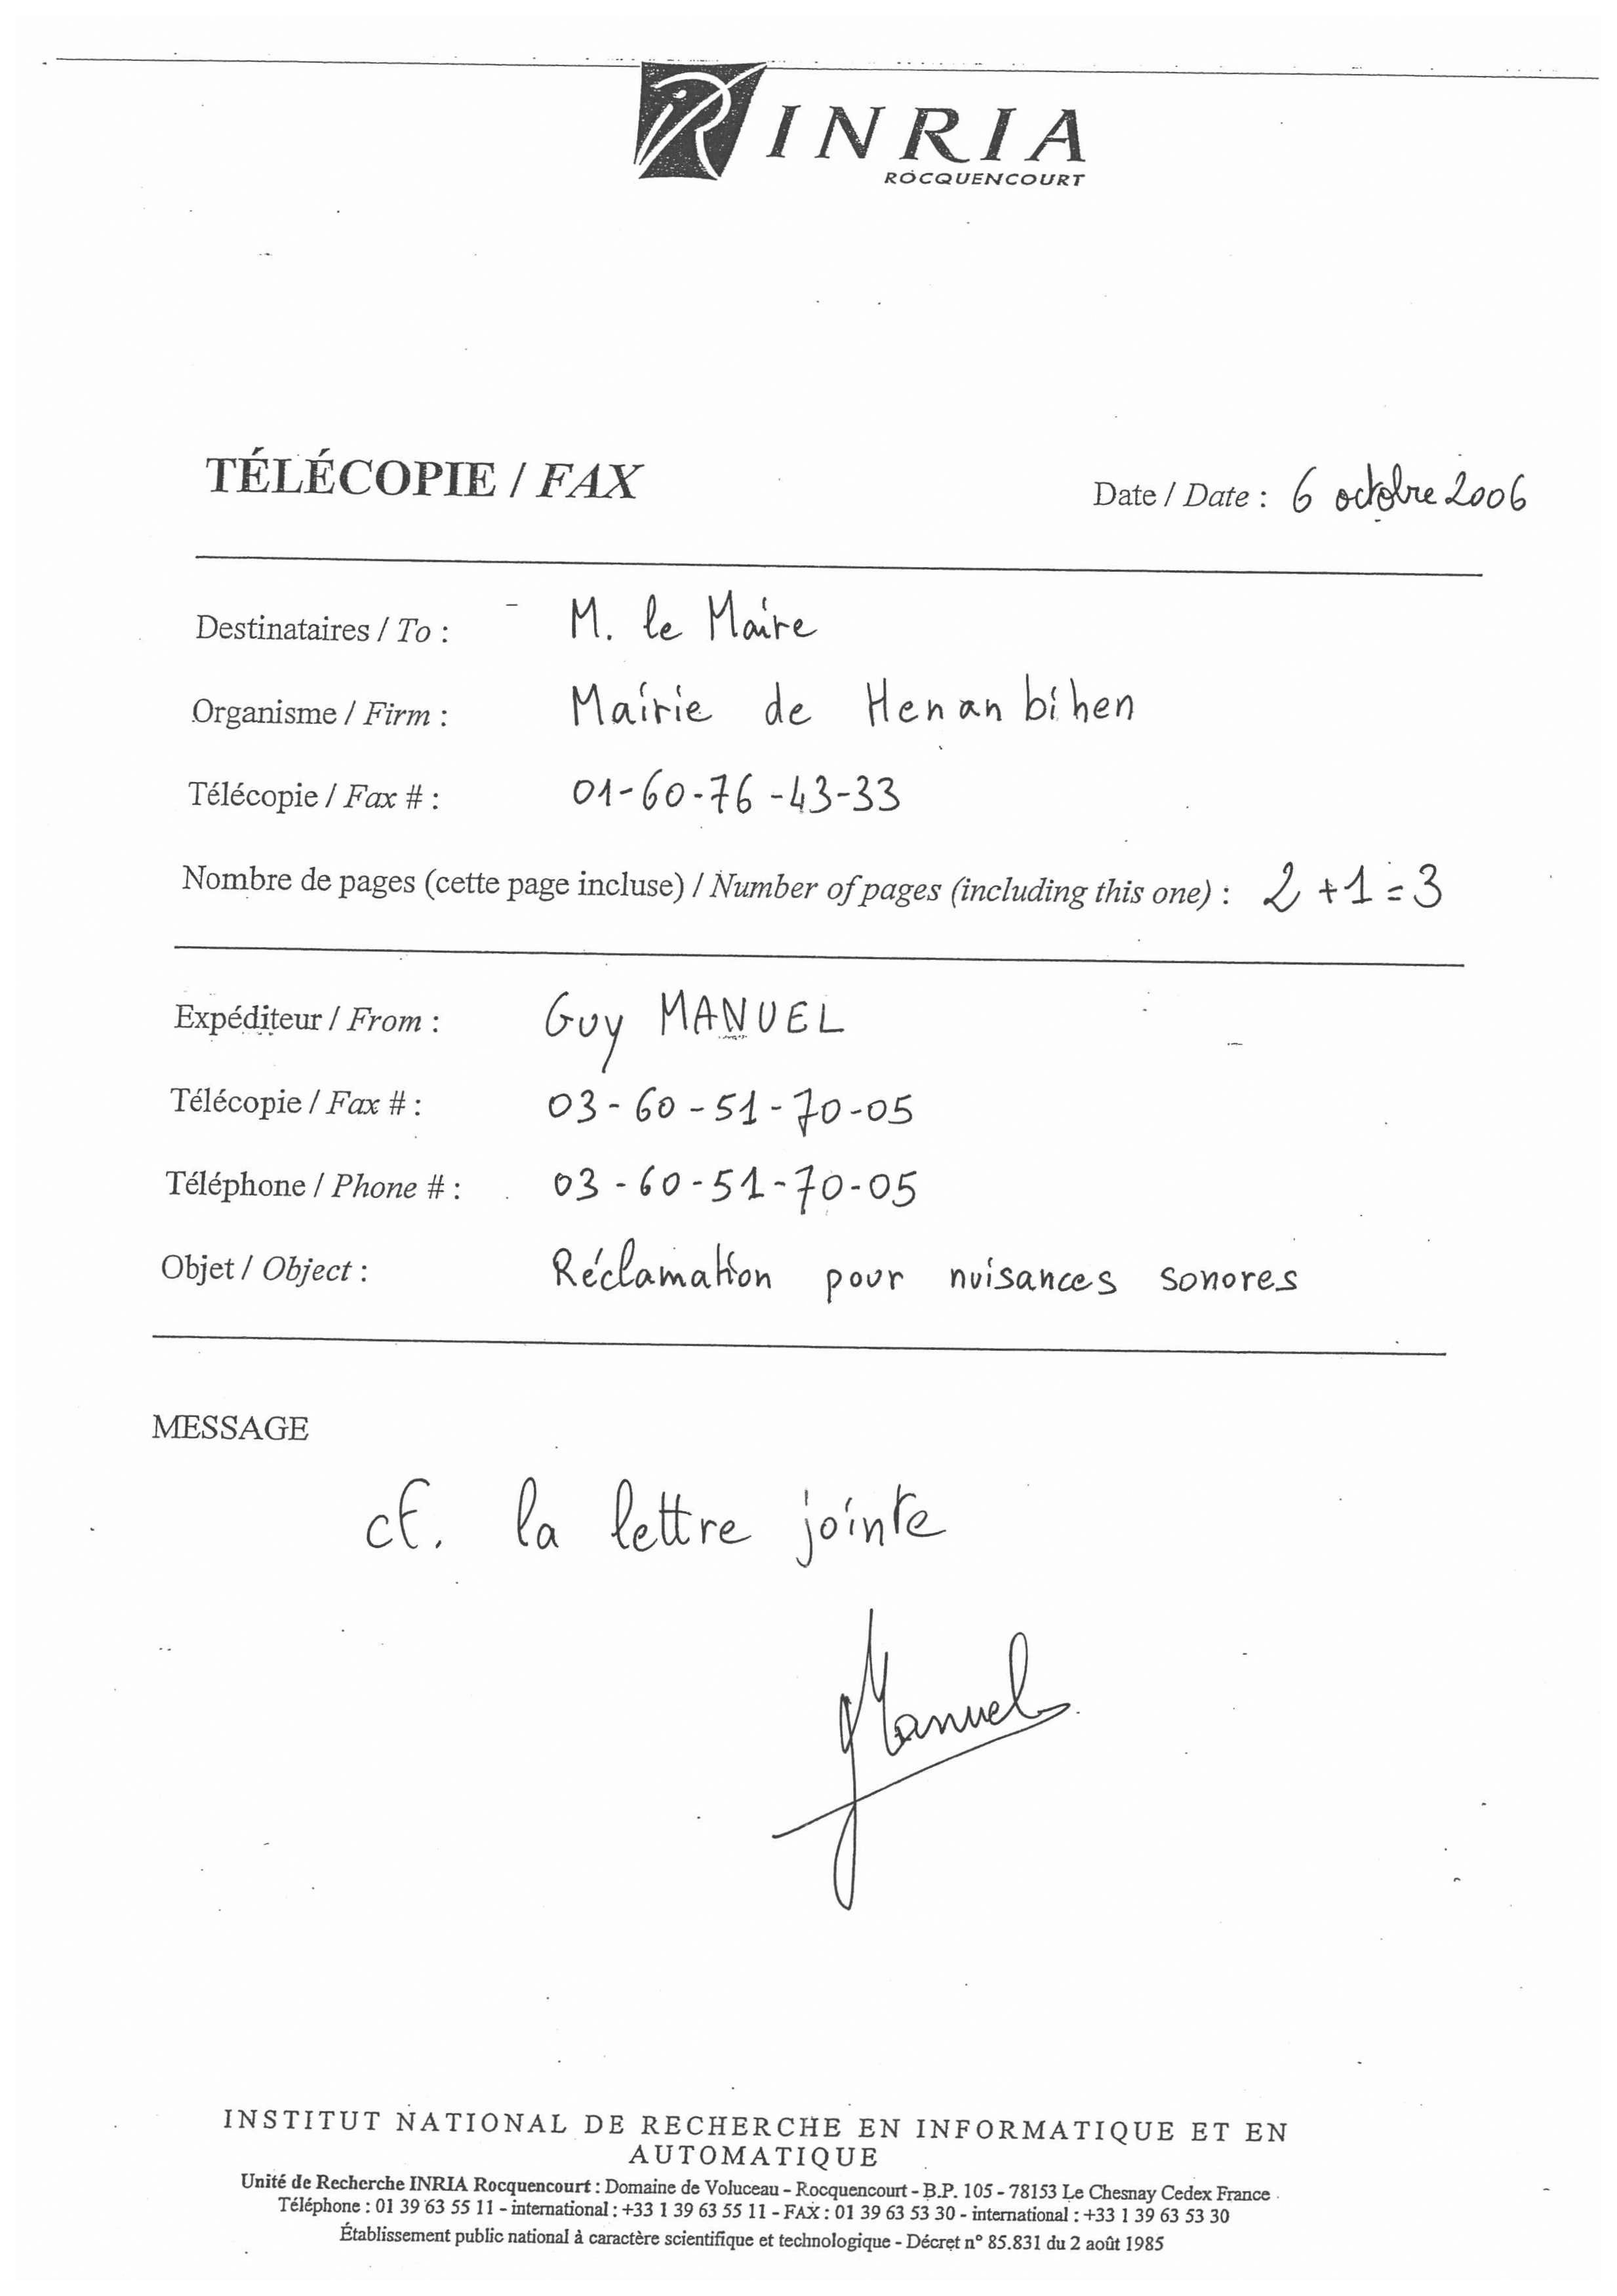 INRIA
ROCQUENCOURT
TÉLÉCOPIE / FAX
Date / Date : 6 octobre 2006
Destinataires / To : M. le Maire
Organisme / Firm : Mairie de Henanbihen
Télécopie / Fax # : 01-60-76-43-33
Nombre de pages (cette page incluse) / Number of pages (including this one) : 2+1=3
Expéditeur / From : Guy MANUEL
Télécopie / Fax # : 03-60-51-70-05
Téléphone / Phone # : 03-60-51-70-05
Objet / Object : Réclamation pour nuisances sonores
MESSAGE
cf. la lettre jointe
Manuel
INSTITUT NATIONAL DE RECHERCHE EN INFORMATIQUE ET EN
AUTOMATIQUE
Unité de Recherche INRIA Rocquencourt : Domaine de Voluceau - Rocquencourt - B.P. 105 - 78153 Le Chesnay Cedex France
Téléphone : 01 39 63 55 11 - international : +33 1 39 63 55 11 - FAX : 01 39 63 53 30 - international : +33 1 39 63 53 30
Établissement public national à caractère scientifique et technologique - Décret n° 85.831 du 2 août 1985